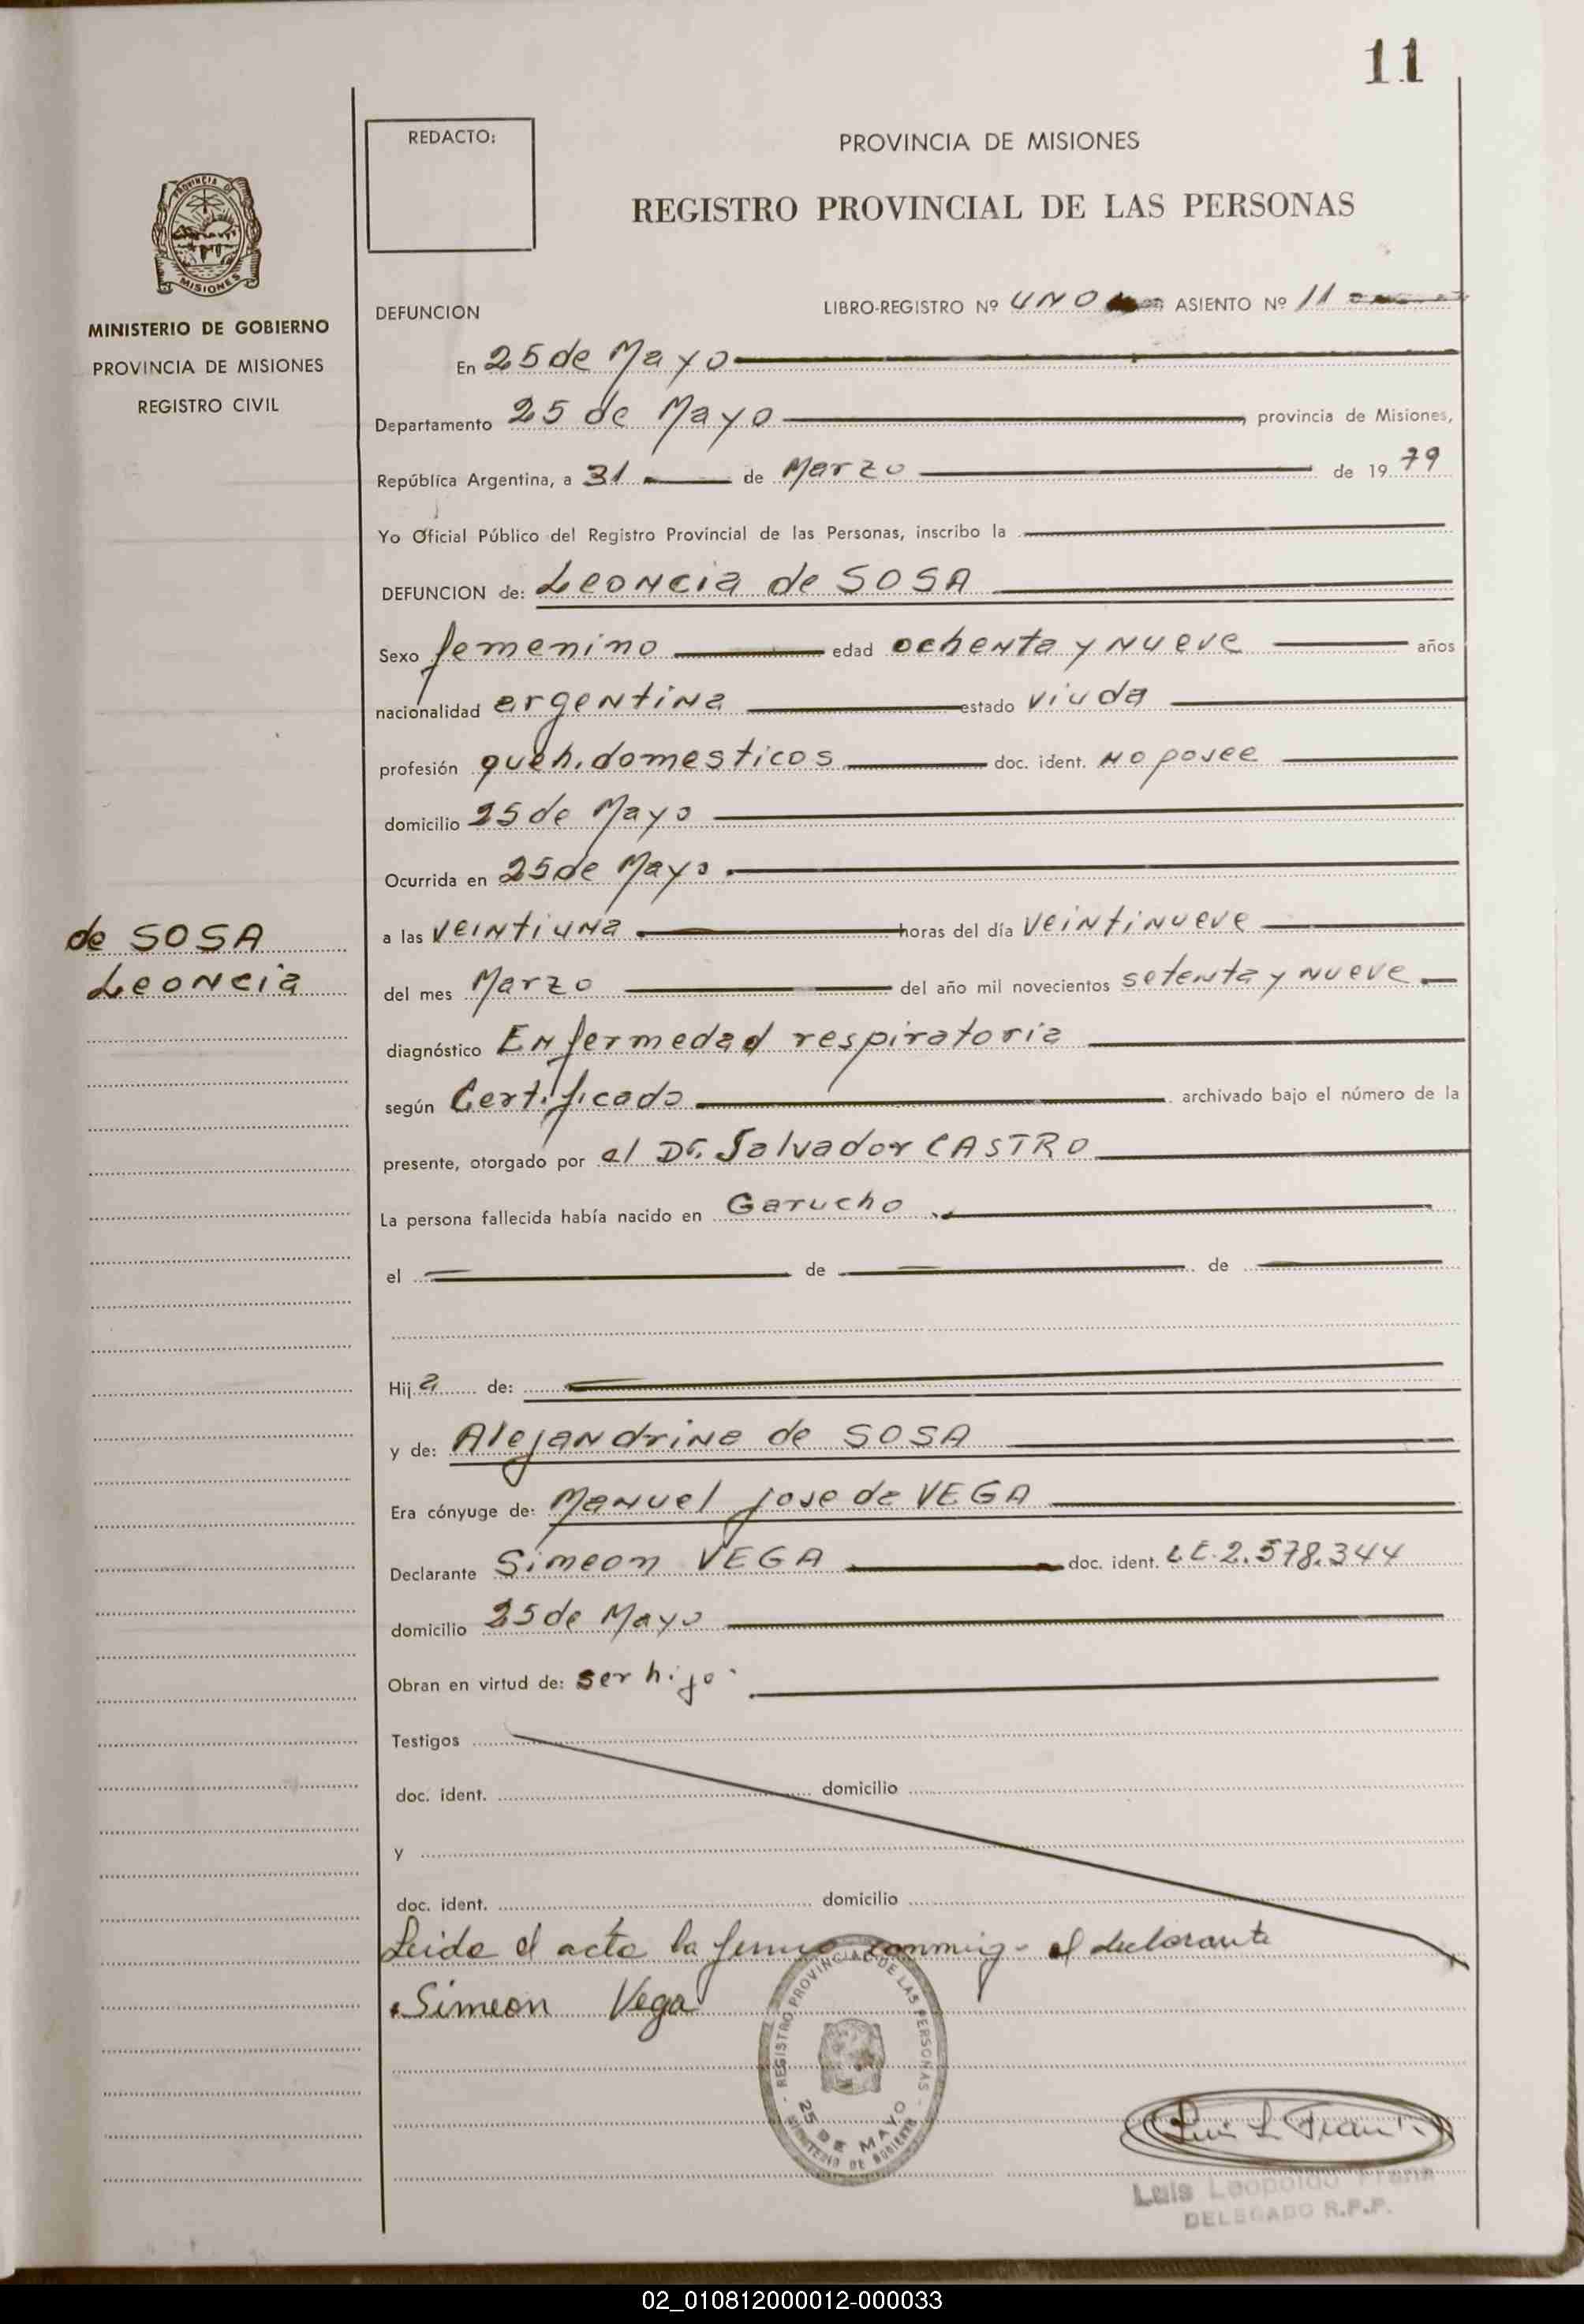 11
REDACTO:
PROVINCIA DE MISIONES
REGISTRO PROVINCIAL DE LAS PERSONAS
PROVINCIA DE
MISIONES
MINISTERIO DE GOBIERNO
PROVINCIA DE MISIONES
REGISTRO CIVIL
DEFUNCION LIBRO-REGISTRO Nº UNO ASIENTO Nº 11
En 25 de Mayo
Departamento 25 de Mayo, provincia de Misiones,
República Argentina, a 31 de Marzo de 1979
Yo Oficial Público del Registro Provincial de las Personas, inscribo la
DEFUNCION de: Leoncia de SOSA
Sexo femenino edad ochenta y nueve años
nacionalidad argentina estado viuda
profesión queh. domesticos doc. ident. no posee
domicilio 25 de Mayo
Ocurrida en 25 de Mayo.
de SOSA
Leoncia
a las veintiuna horas del día veintinueve
del mes Marzo del año mil novecientos setenta y nueve
diagnóstico Enfermedad respiratoria
según Certificado archivado bajo el número de la
presente, otorgado por el Dr. Salvador CASTRO
La persona fallecida había nacido en Garucho
el de de
Hija de:
y de: Alejandrina de SOSA
Era cónyuge de: Manuel jose de VEGA
Declarante Simeon VEGA doc. ident. L.E. 2.578.344
domicilio 25 de Mayo
Obran en virtud de: ser hijo.
Testigos
doc. ident. domicilio
y
doc. ident. domicilio
Leida el acta la firma conmigo el declarante
Simeon Vega
REGISTRO PROVINCIAL DE LAS PERSONAS
25 DE MAYO
MINISTERIO DE GOBIERNO
Luis Leopoldo
DELEGADO R.P.P.
02_010812000012-000033